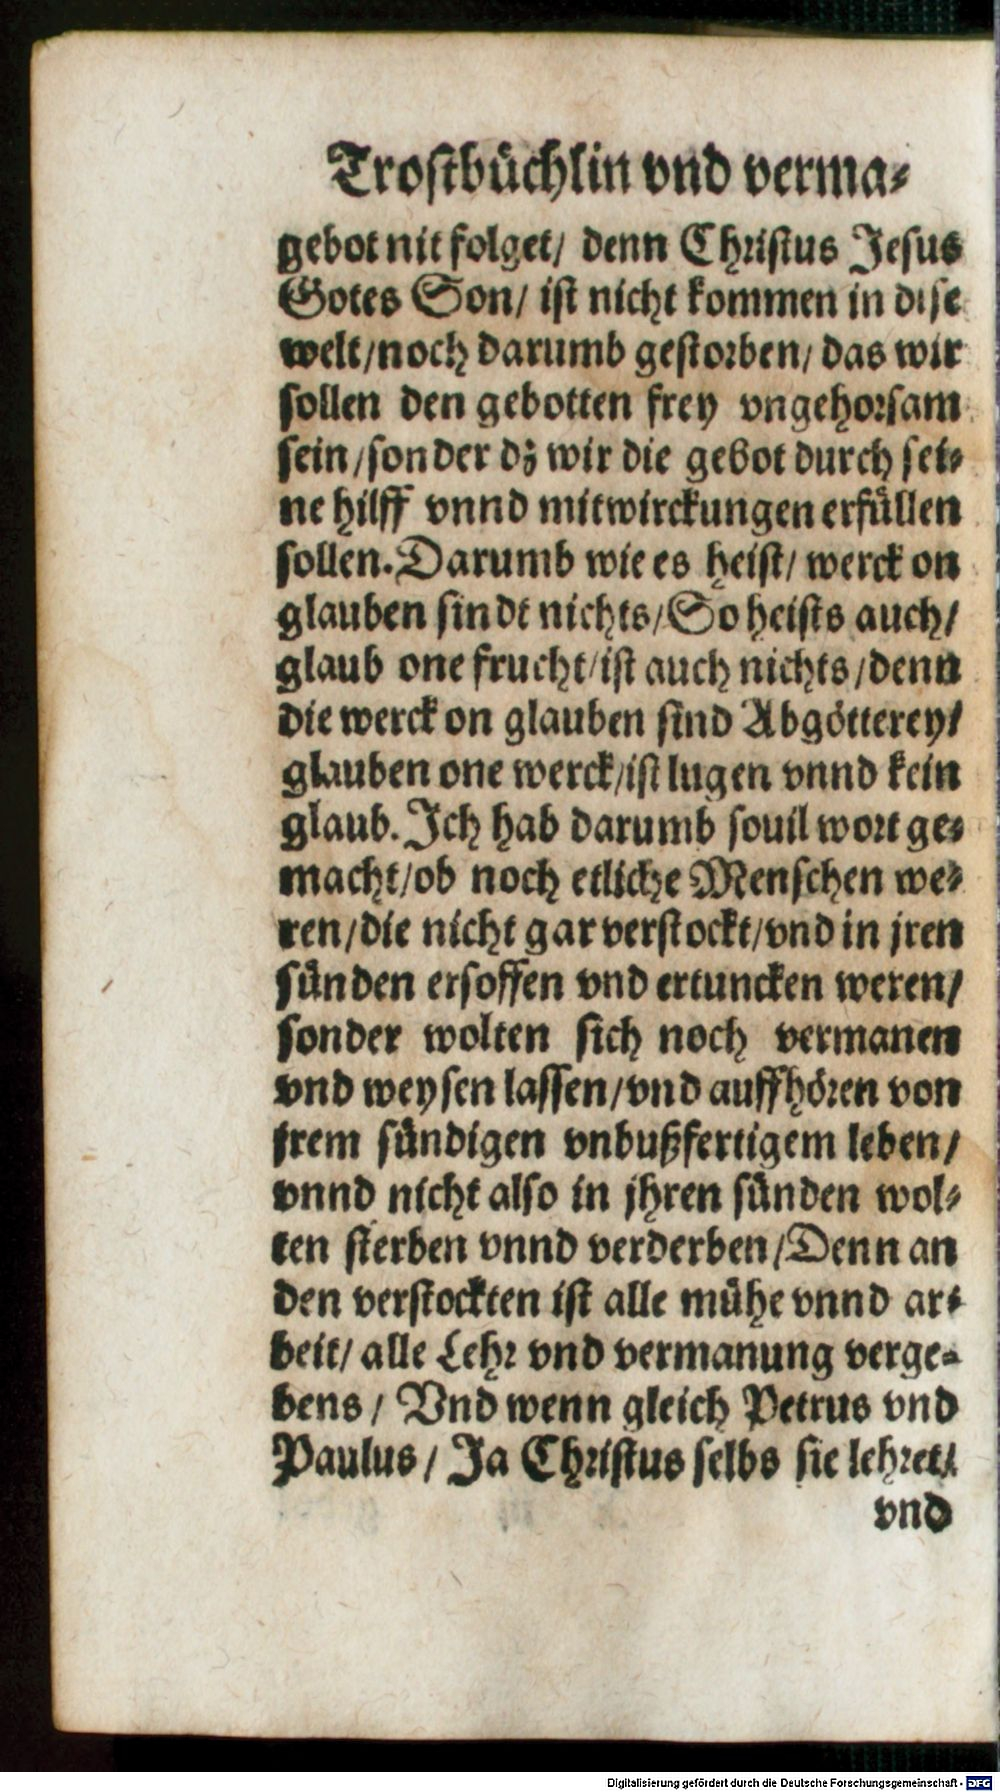 Trostbüchlin vnd verma⸗
gebot nit folget/ denn Christus Jesus
Gotes Son/ ist nicht kommen in dise
welt/noch darumb gestorben/ das wir
sollen den gebotten frey vngehorsam
sein/sonder dz wir die gebot durch sei⸗
ne hilff vnnd mitwirckungen erfüllen
sollen. Darumb wie es heist/ werck on
glauben sindt nichts/So heists auch/
glaub one frucht/ist auch nichts/denn
die werck on glauben sind Abgötterey/
glauben one werck/ist lugen vnnd kein
glaub. Ich hab darumb souil wort ge⸗
macht/ob noch etliche Menschen we⸗
ren/die nicht gar verstockt/vnd in jren
sünden ersoffen vnd ertuncken weren/
sonder wolten sich noch vermanen
vnd weysen lassen/vnd auffhören von
jrem sündigen vnbußfertigem leben/
vnnd nicht also in jhren sünden wol⸗
ten sterben vnnd verderben/Denn an
den verstockten ist alle mühe vnnd ar⸗
beit/ alle Lehr vnd vermanung verge⸗
bens/ Vnd wenn gleich Petrus vnd
Paulus/ Ja Christus selbs sie lehret/
vnd
Digitalisierung gefördert durch die Deutsche Forschungsgemeinschaft - DFG